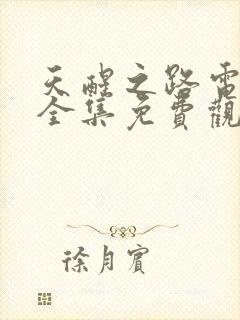 天醒之路電
全集免費觀
徐月賓